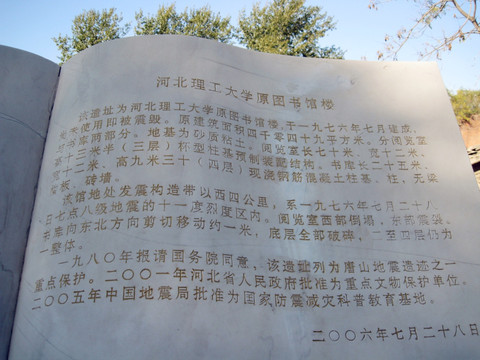 河北理工大学原图书馆楼
该遗址为河北理工大学原图书馆楼,于一九七六年七月建成,
未来使用即被震毁。原建筑面积四千零四十九平方米。分阅览室
和书库两部分。地基为砂质粘土。阅览室长七十米、宽十二米、
高十三米半(三层)杯型柱基预制装配结构。书库长二十五米、
宽十二米、高九米三十(四层)现浇钢筋混凝土柱基、柱,无梁
楼板,砖墙。
该馆地处发震构造带以西四公里,系一九七六年七月二十八
日七点八级地震的十一度烈度区内。阅览室西部倒塌,东部震裂。
书库向东北方向剪切移动约一米,底层全部破碎,二至四层仍为
一整体。
一九八〇年报请国务院同意,该遗址列为唐山地震遗迹之一
重点保护。二〇〇一年河北省人民政府批准为重点文物保护单位。
二〇〇五年中国地震局批准为国家防震减灾科普教育基地。
二〇〇六年七月二十八日